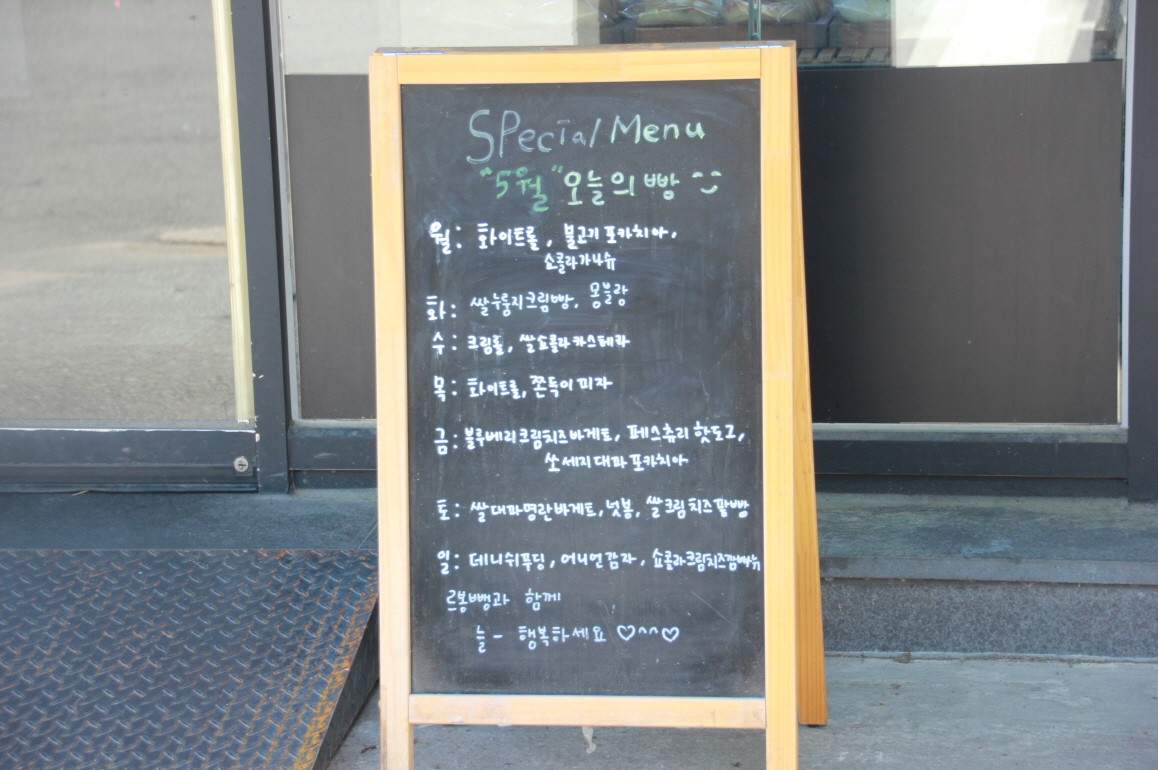 Special Menu
"5월" 오늘의 빵
월: 화이트롤, 불고기 포카치아,
쇼콜라가나슈
화: 쌀누룽지크림빵, 몽블랑
수: 크림롤, 쌀쇼콜라 카스테라
목: 화이트롤, 쫀득이피자
금: 블루베리크림치즈바게트, 페스츄리 핫도그,
쏘세지대파 포카치아
토: 쌀대파명란바게트, 넛봉, 쌀크림치즈팥빵
일: 데니쉬푸딩, 어니언감자, 쇼콜라크림치즈깜빠뉴
르봉뺑과 함께
늘 - 행복하세요 ♡^^♡